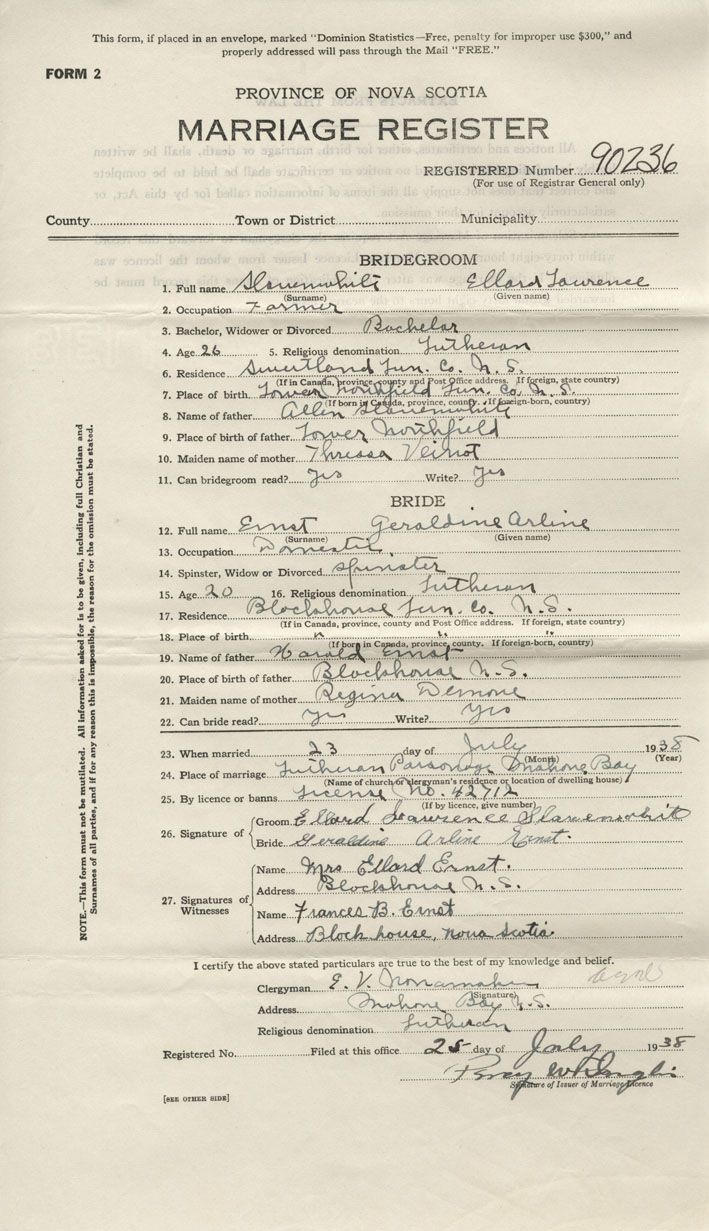 This form, if placed in an envelope, marked "Dominion Statistics—Free, penalty for improper use $300," and
properly addressed will pass through the Mail "FREE."
FORM 2
PROVINCE OF NOVA SCOTIA
MARRIAGE REGISTER
REGISTERED Number 90236
(For use of Registrar General only)
County Town or District Municipality
BRIDEGROOM
1. Full name Slauenwhite Ellard Lawrence
(Surname) (Given name)
2. Occupation Farmer
3. Bachelor, Widower or Divorced Bachelor
4. Age 26 5. Religious denomination Lutheran
6. Residence Sweetland Lun. Co. N. S.
(If in Canada, province, county and Post Office address. If foreign, state country)
7. Place of birth Lower Northfield Lun. Co. N. S.
(If born in Canada, province, county. If foreign-born, country)
8. Name of father Allen Slauenwhite
9. Place of birth of father Lower Northfield
10. Maiden name of mother Thressa Veinot
11. Can bridegroom read? yes Write? yes
BRIDE
12. Full name Ernst Geraldine Arline
(Surname) (Given name)
13. Occupation Domestic
14. Spinster, Widow or Divorced spinster
15. Age 20 16. Religious denomination Lutheran
17. Residence Blockhouse Lun. Co. N. S.
(If in Canada, province, county and Post Office address. If foreign, state country)
18. Place of birth " " "
(If born in Canada, province, county. If foreign-born, country)
19. Name of father Harold Ernst
20. Place of birth of father Blockhouse N. S.
21. Maiden name of mother Regina Demone
22. Can bride read? yes Write? yes
23. When married 23 day of July 1938
(Month) (Year)
24. Place of marriage Lutheran Parsonage Mahone Bay
(Name of church or clergyman's residence or location of dwelling house)
25. By licence or banns License No. 42712
(If by licence, give number)
26. Signature of
Groom Ellard Lawrence Slauenwhite
Bride Geraldine Arline Ernst.
27. Signatures of Witnesses
Name Mrs Ellard Ernst.
Address Blockhouse N. S.
Name Frances B. Ernst
Address Block house, Nova Scotia
I certify the above stated particulars are true to the best of my knowledge and belief.
Clergyman E. V. Nonamaker
(Signature)
Address Mahone Bay N. S.
Religious denomination Lutheran
Registered No. Filed at this office 25 day of July 1938
Signature of Issuer of Marriage Licence
[SEE OTHER SIDE]
NOTE.—This form must not be mutilated. All information asked for is to be given, including full Christian and
Surnames of all parties, and if for any reason this is impossible, the reason for the omission must be stated.